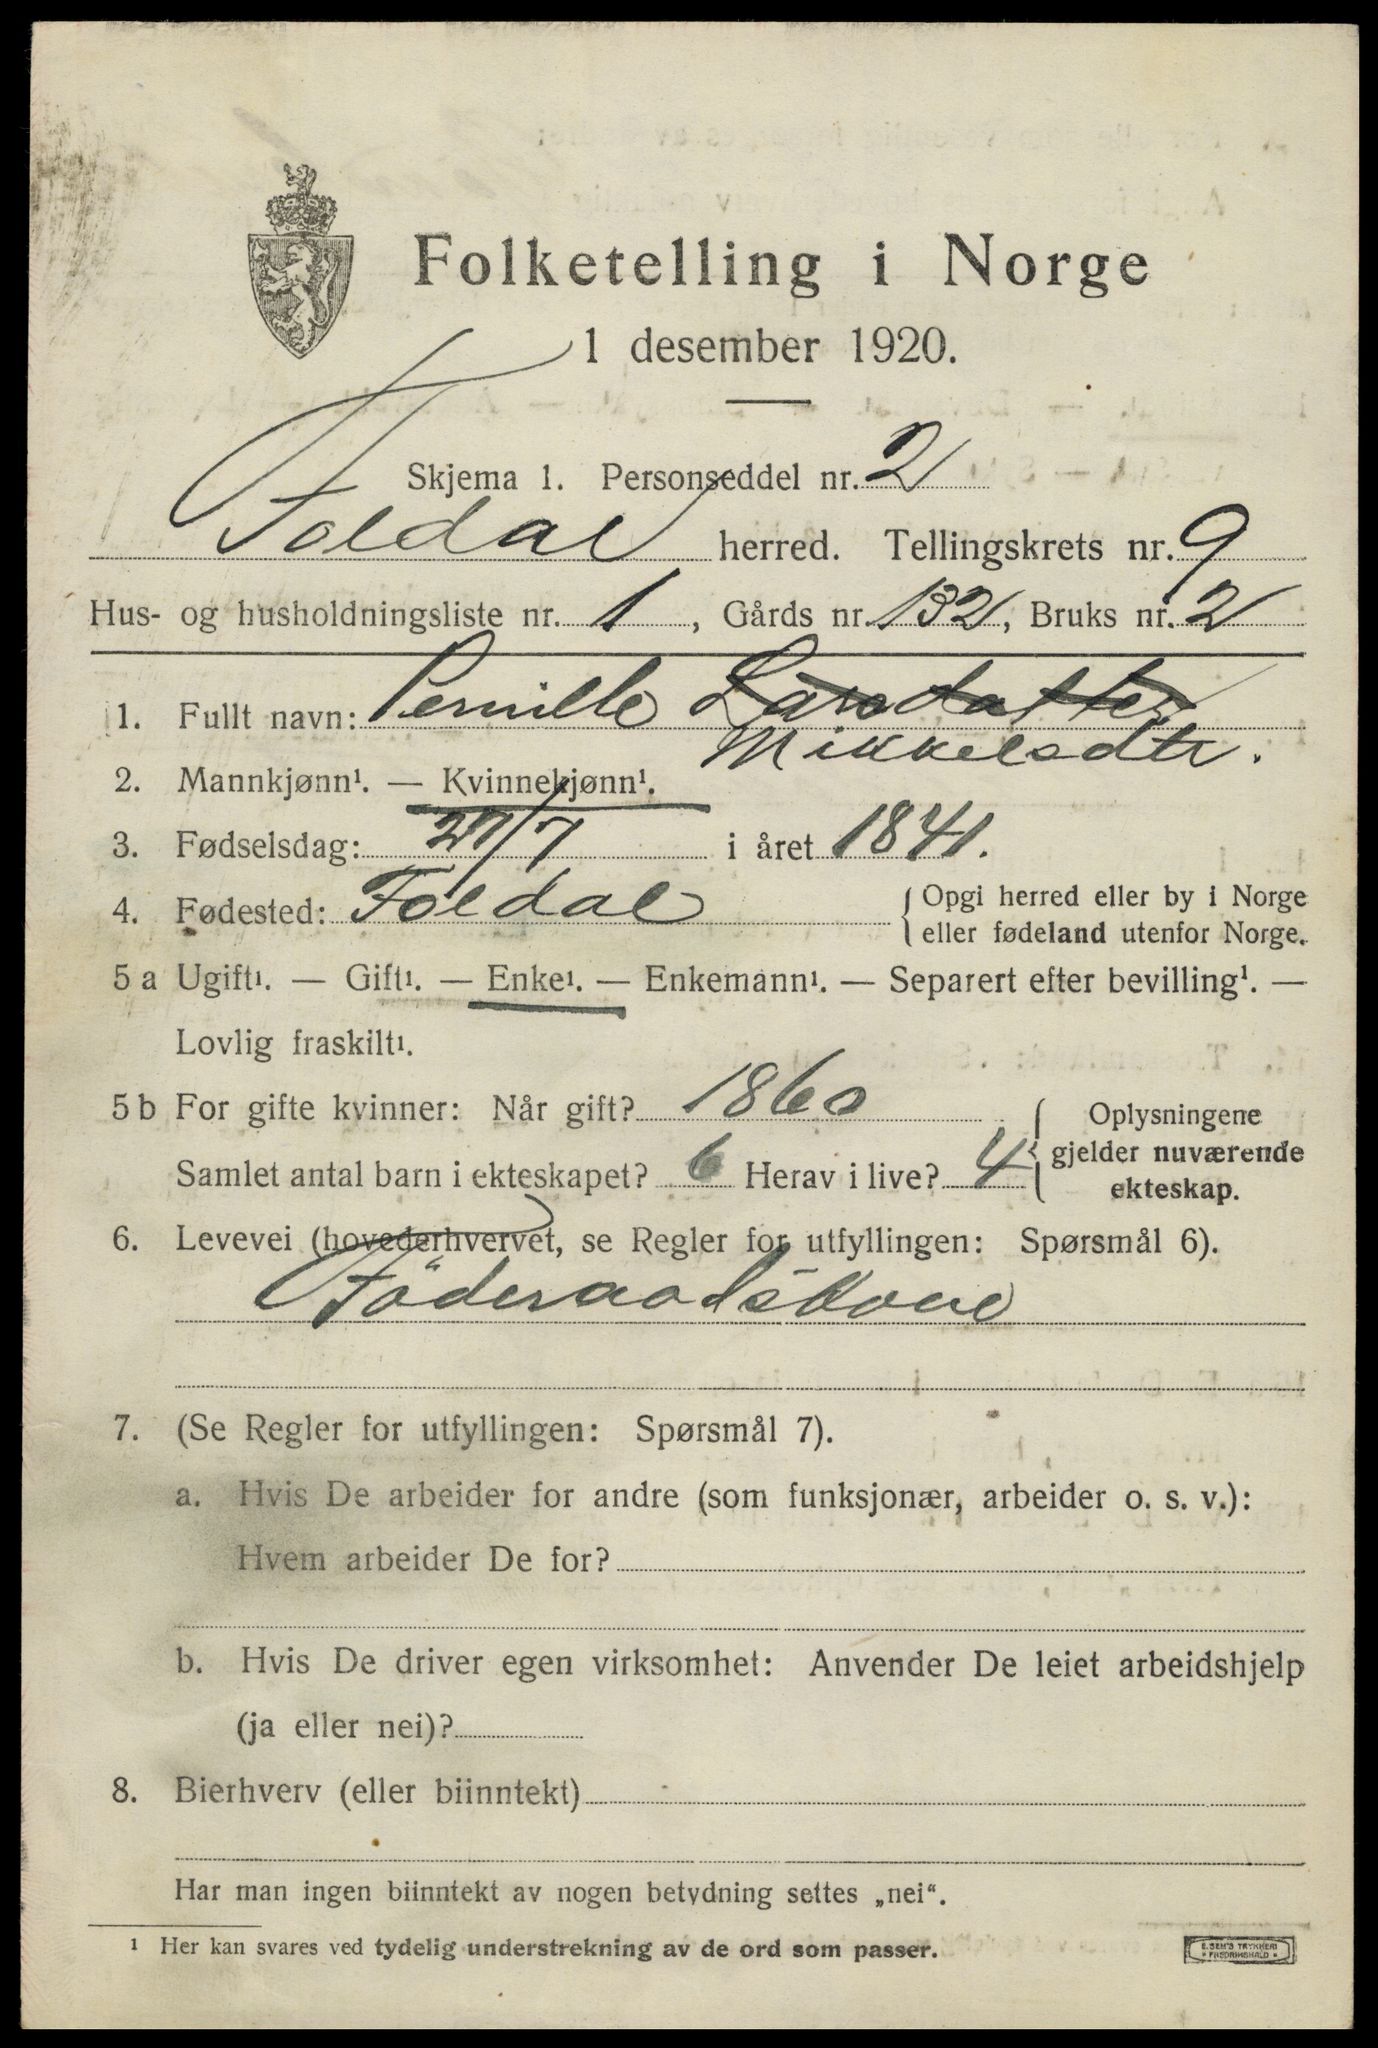 Folketelling i Norge
1 desember 1920.
Skjema 1. Personseddel nr. 2
Foldal herred. Tellingskrets nr. 9
Hus- og husholdningsliste nr. 1, Gårds nr. 132, Bruks nr. 2
1. Fullt navn: Pernille Larsdatter
Mikkelsdtr.
2. Mannkjønn¹. — Kvinnekjønn¹.
3. Fødselsdag: 27/7 i året 1841.
4. Fødested: Foldal { Opgi herred eller by i Norge
eller fødeland utenfor Norge.
5 a Ugift¹. — Gift¹. — Enke¹. — Enkemann¹. — Separert efter bevilling¹. —
Lovlig fraskilt¹.
5 b For gifte kvinner: Når gift? 1860
Samlet antal barn i ekteskapet? 6 Herav i live? 4
{ Oplysningene
gjelder nuværende
ekteskap.
6. Levevei (hovederhvervet, se Regler for utfyllingen: Spørsmål 6).
Föderaadskone
7. (Se Regler for utfyllingen: Spørsmål 7).
a. Hvis De arbeider for andre (som funksjonær, arbeider o. s. v.):
Hvem arbeider De for?
b. Hvis De driver egen virksomhet: Anvender De leiet arbeidshjelp
(ja eller nei)?
8. Bierhverv (eller biinntekt)
Har man ingen biinntekt av nogen betydning settes „nei“.
¹ Her kan svares ved tydelig understrekning av de ord som passer.
E. SEM'S TRYKKERI
* FREDRIKSHALD *